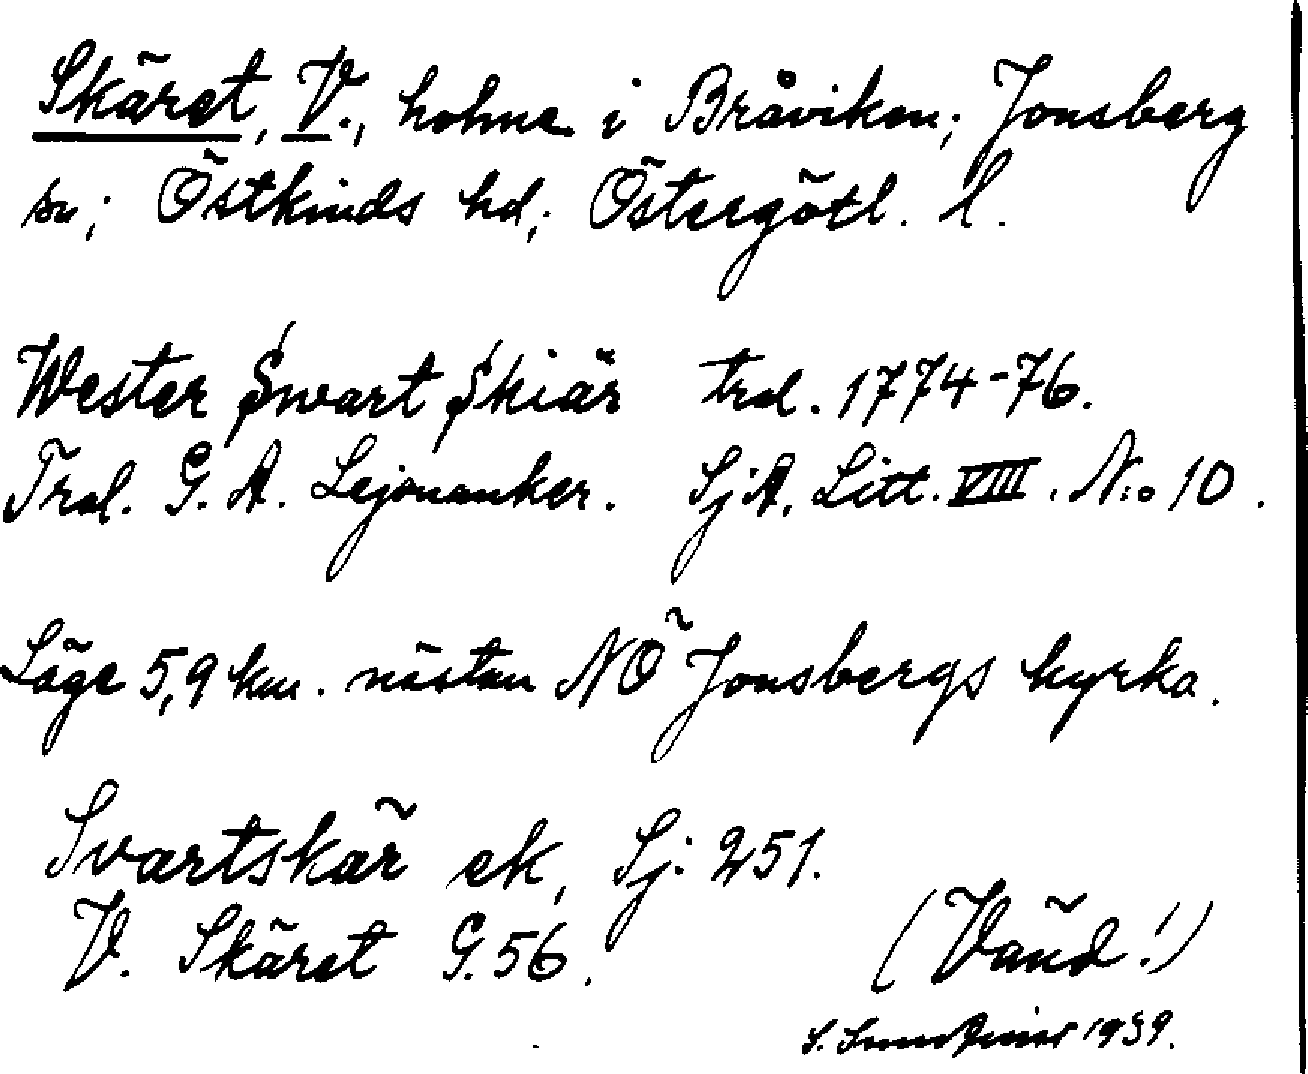 Skäret, V., holme i Bråviken; Jonsberg
sn; Östkinds hd; Östergötl. l.
Wester Swart Skiär trol. 1774-76.
Trol. G. A. Lejonanker. SjA. Litt. VIII. N:o 10.
Läge 5,9 km. nästan NÖ Jonsbergs kyrka.
Svartskär ek, Sj. 251.
V. Skäret G. 56.
(Vänd!)
S. 1939.